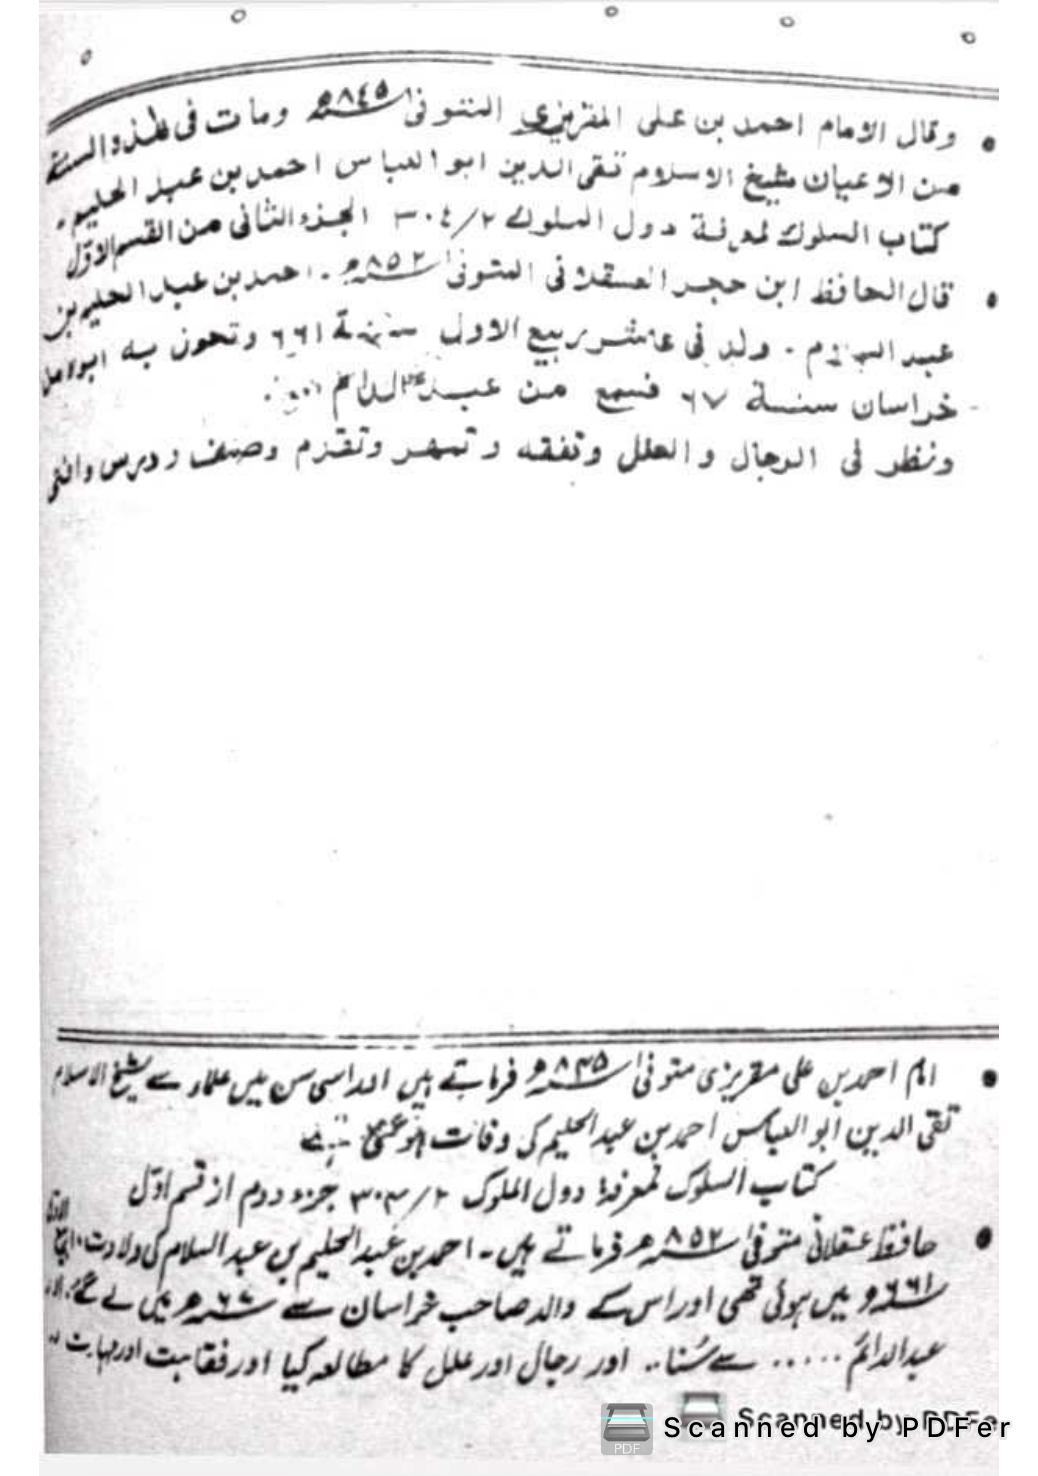 • وقال الامام احمد بن على المقريزي المتوفىٰ ٨٤٥ھ ومات فى هٰذه السنة
من الاعيان شيخ الاسلام تقى الدين ابو العباس احمد بن عبد الحليم۔
كتاب السلوك لمعرفة دول السلوك ٣٠٤/٢ الجزء الثانى من القسم الاوّل
• قال الحافظ ابن حجر العسقلانى المتوفىٰ ٨٥٢ھ ۔ احمد بن عبد الحليم بن
عبد السلام ۔ ولد فى عاشر ربيع الاول سنة ٦٦١ وتحون به ابوه من
خراسان سنة ٦٧ فسمع من عبد الدائم
ونظر فى الرجال والعلل وتفقه وتمهر وتقدم وصنف ودرس وافتى
• امام احمد بن علی مقریزی متوفیٰ ۸۴۵ھ فرماتے ہیں اور اسی سن میں علماء سے شیخ الاسلام
تقی الدین ابو العباس احمد بن عبد الحلیم کی وفات ہوگئی ہے
کتاب السلوک لمعرفۃ دول الملوک ۳۰۴/۲ جزء دوم از قسم اوّل
• حافظ عسقلانی متوفیٰ ۸۵۲ھ فرماتے ہیں۔ احمد بن عبد الحلیم بن عبد السلام کی ولادت ۱۰ ربیع الاول
۶۶۱ھ میں ہوئی تھی اور اس کے والد صاحب خراسان سے ۶۷ھ میں لے گئے
عبد الدائم ..... سے سُنا.. اور رجال اور علل کا مطالعہ کیا اور فقاہت اور مہارت
Scanned by PDFer
Scanned by PDFer
PDF